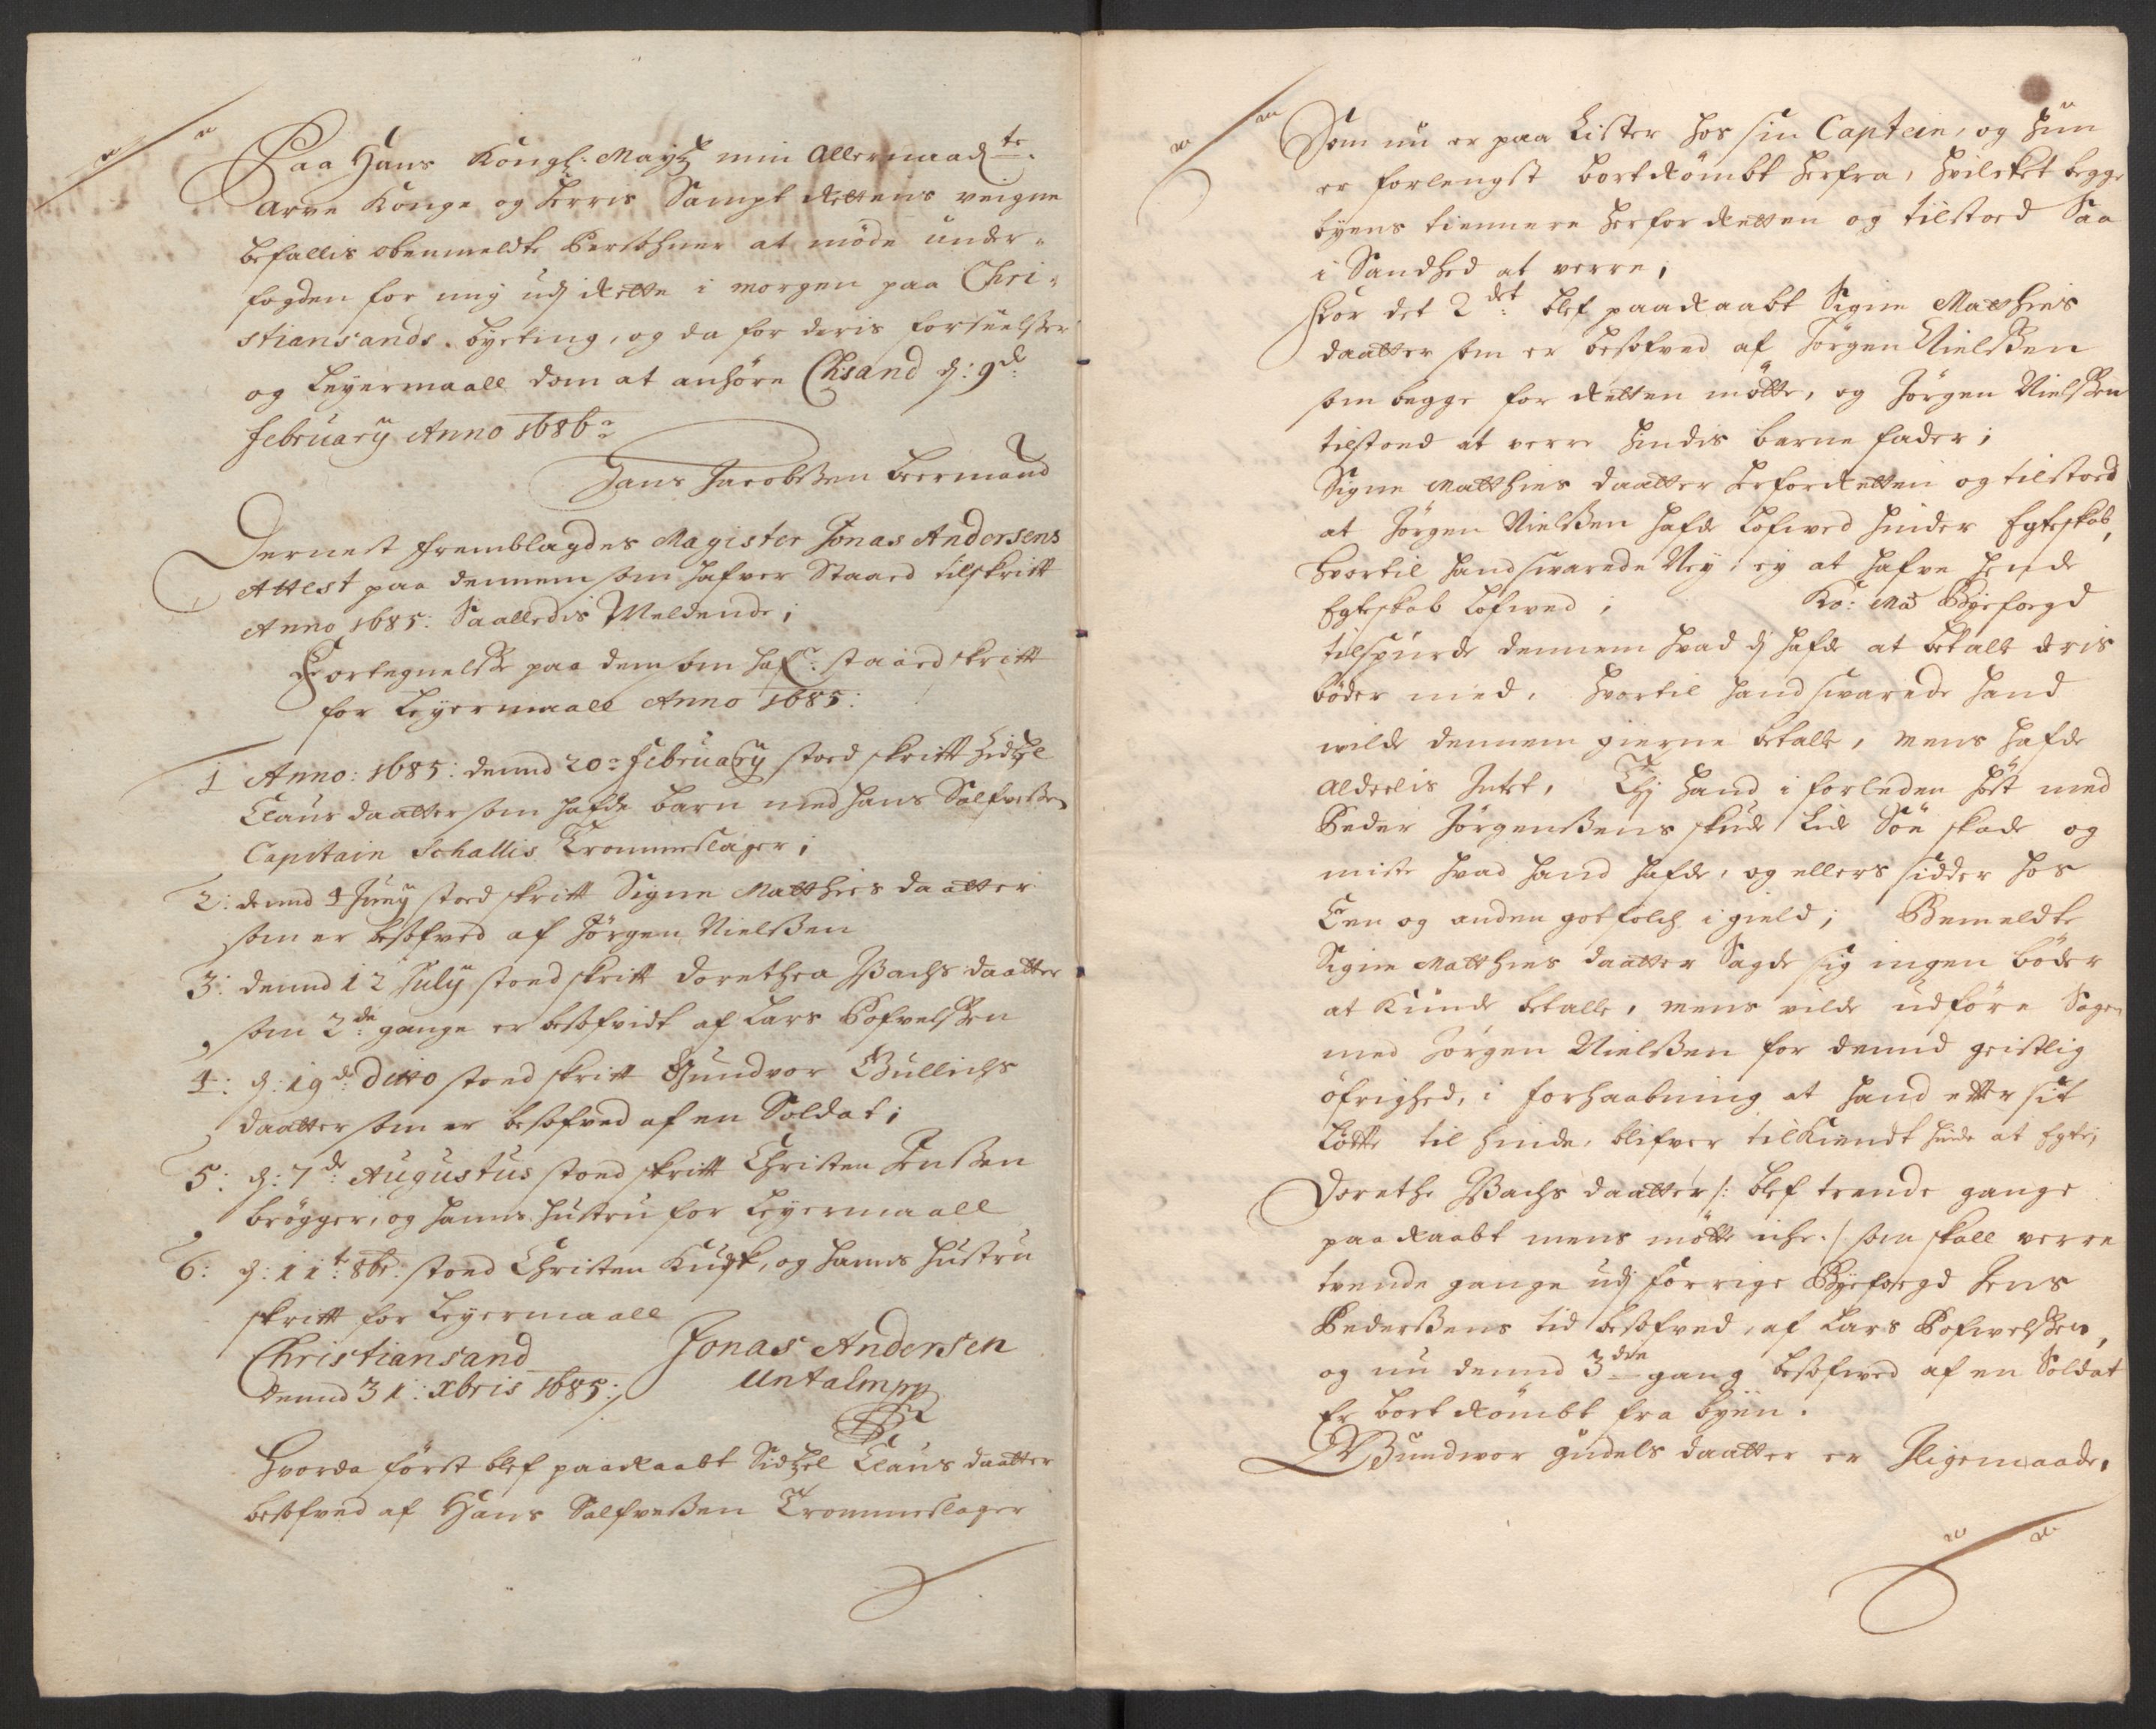 Paa Hans Kongl: Maytz min Allernaad te:
Arve Konge og Herris Sampt Rettens veigne
befallis obenmeldte Persohner at møde under-
fogden for mig udj Rette i morgen paa Chri-
stiansands byeting, og da for deris forseelsser
og Leyermaall dom at anhøre Chsand d: 9de:
February Anno 1686
Hans Jacobssen Beermand
Dernest fremblagdes Magister Jonas Andersens
Attest paa dennem som hafver Staaed tilskrift
Anno 1685: Saalledis Meldende;
Fortegnelsse paa dem som hafr: staaed skrift
for Leyermaall Anno 1685:
1 Anno: 1685: dend 20 February stoed skrift Sidtzel
Claus daatter som hafde barn med Hans Salfvessen
Capitain Schallis Trommeslager;
2: dend 4 Juny stoed skrift Signe Matthies daatter
som er besofved af Jørgen Nielssen
3: dend 12 July stoed skrift Dorethea Bachs daatter
som 2de: gange er besofvidt af Lars Pofvelssen
4: d: 19de: Ditto stoed skrift Gundvor Gullichs
daatter som er besofved af en Soldat;
5: d: 7de: Augustus stoed skrift Christen Jenssen
brøgger, og hanns hustru for Leyermaall
6: d: 11te: 8br. stoed Christen Kusk, og hanns hustru
skrift for Leyermaall
Christiansand Jonas Andersen
dend 31: Xbris 1685: Mntalmpp
Hvorda først blef paaraabt Sidtzel Claus daatter
besofved af Hans Salfvessen Trommeslager
Som nu er paa Lister hos sin Captein, og hun
er forlengst bortrømbt herfra, hvilcket begge
byens tiennere her for Retten og tilstoed Saa
i Sandhed at verre;
For det 2det: blef paaraabt Signe Matthies
daatter som er besofved af Jørgen Nielssen
som begge for Retten møtte, og Jørgen Nielssen
tilstoed at verre hindis barne fader;
Signe Matthies daatter her for Retten og tilstoed
at Jørgen Nielssen hafde Lofved hinder Egteskab,
hvortil hand svarede Ney, ey at hafve hende
Egteskab Lofved; Ko: Ma Byefogd
tilspurde dennem hvad dj hafde at betalt deris
bøder med, hvortil hand svarede hand
vilde dennem gierne betalt, mens hafde
alderlis Intet, Thj hand i forleden høst med
Peder Jørgenssens skude Lide Søe skade og
miste hvad hand hafde, og ellers sidder hos
Een og anden got folch i gield; Bemeldte
Signe Matthies daatter Sagde sig ingen bøder
at kunde betalle, mens vilde udføre Sagen
med Jørgen Nielssen for dend geistlig
øfrighed, i forhaabning at hand etter sit
Løfte til hinde, blifver tilkiendt hinde at Egte;
Dorethe Bachs daatter /: blef trende gange
paaraabt mens møtte iche. / som skall verre
tvende gange udj forrige Byefogd Jens
Pederssens tid besofved, af Lars Pofvelssen,
og nu dend 3die gang besofved af en Soldat
Er bort rømbt fra byen.
Gundvor Gudels daatter er Iligemaade,